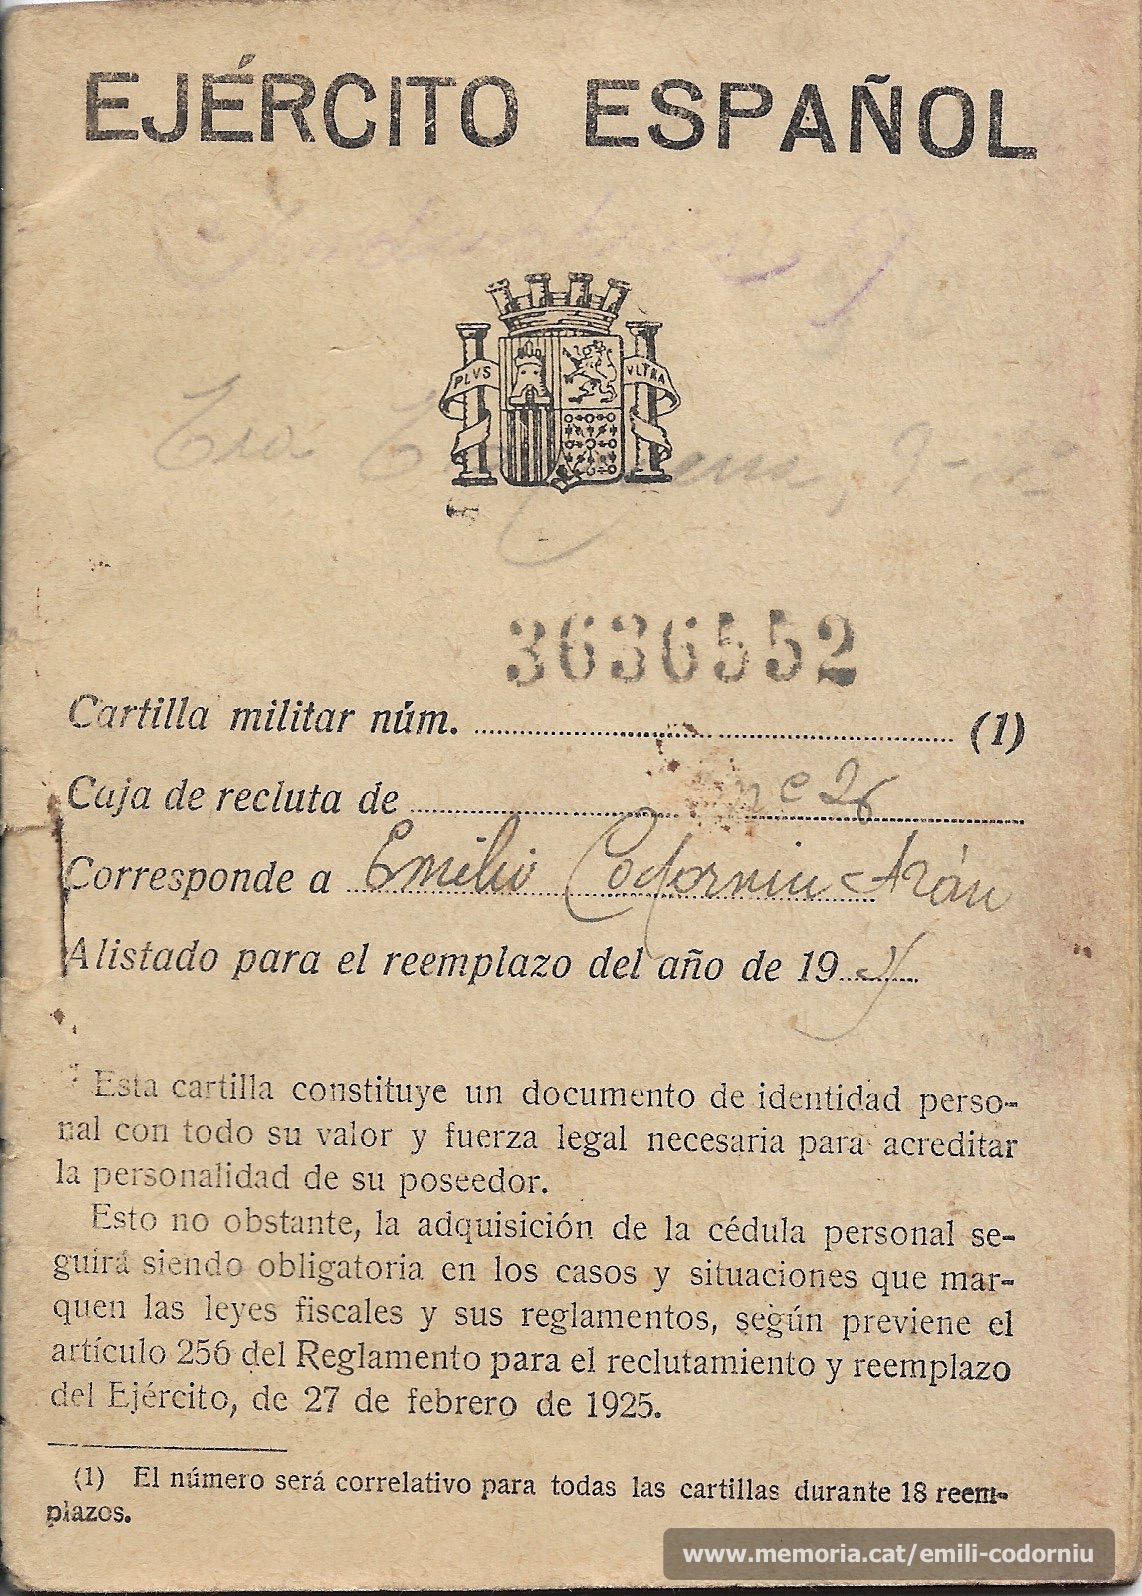 EJÉRCITO ESPAÑOL
PLVS VLTRA
3636552
Cartilla militar núm. (1)
Caja de recluta de nº 26
Corresponde a Emilio Codorniu Arán
Alistado para el reemplazo del año de 19
Esta cartilla constituye un documento de identidad perso-
nal con todo su valor y fuerza legal necesaria para acreditar
la personalidad de su poseedor.
Esto no obstante, la adquisición de la cédula personal se-
guirá siendo obligatoria en los casos y situaciones que mar-
quen las leyes fiscales y sus reglamentos, según previene el
artículo 256 del Reglamento para el reclutamiento y reemplazo
del Ejército, de 27 de febrero de 1925.
(1) El número será correlativo para todas las cartillas durante 18 reem-
plazos.
www.memoria.cat/emili-codorniu